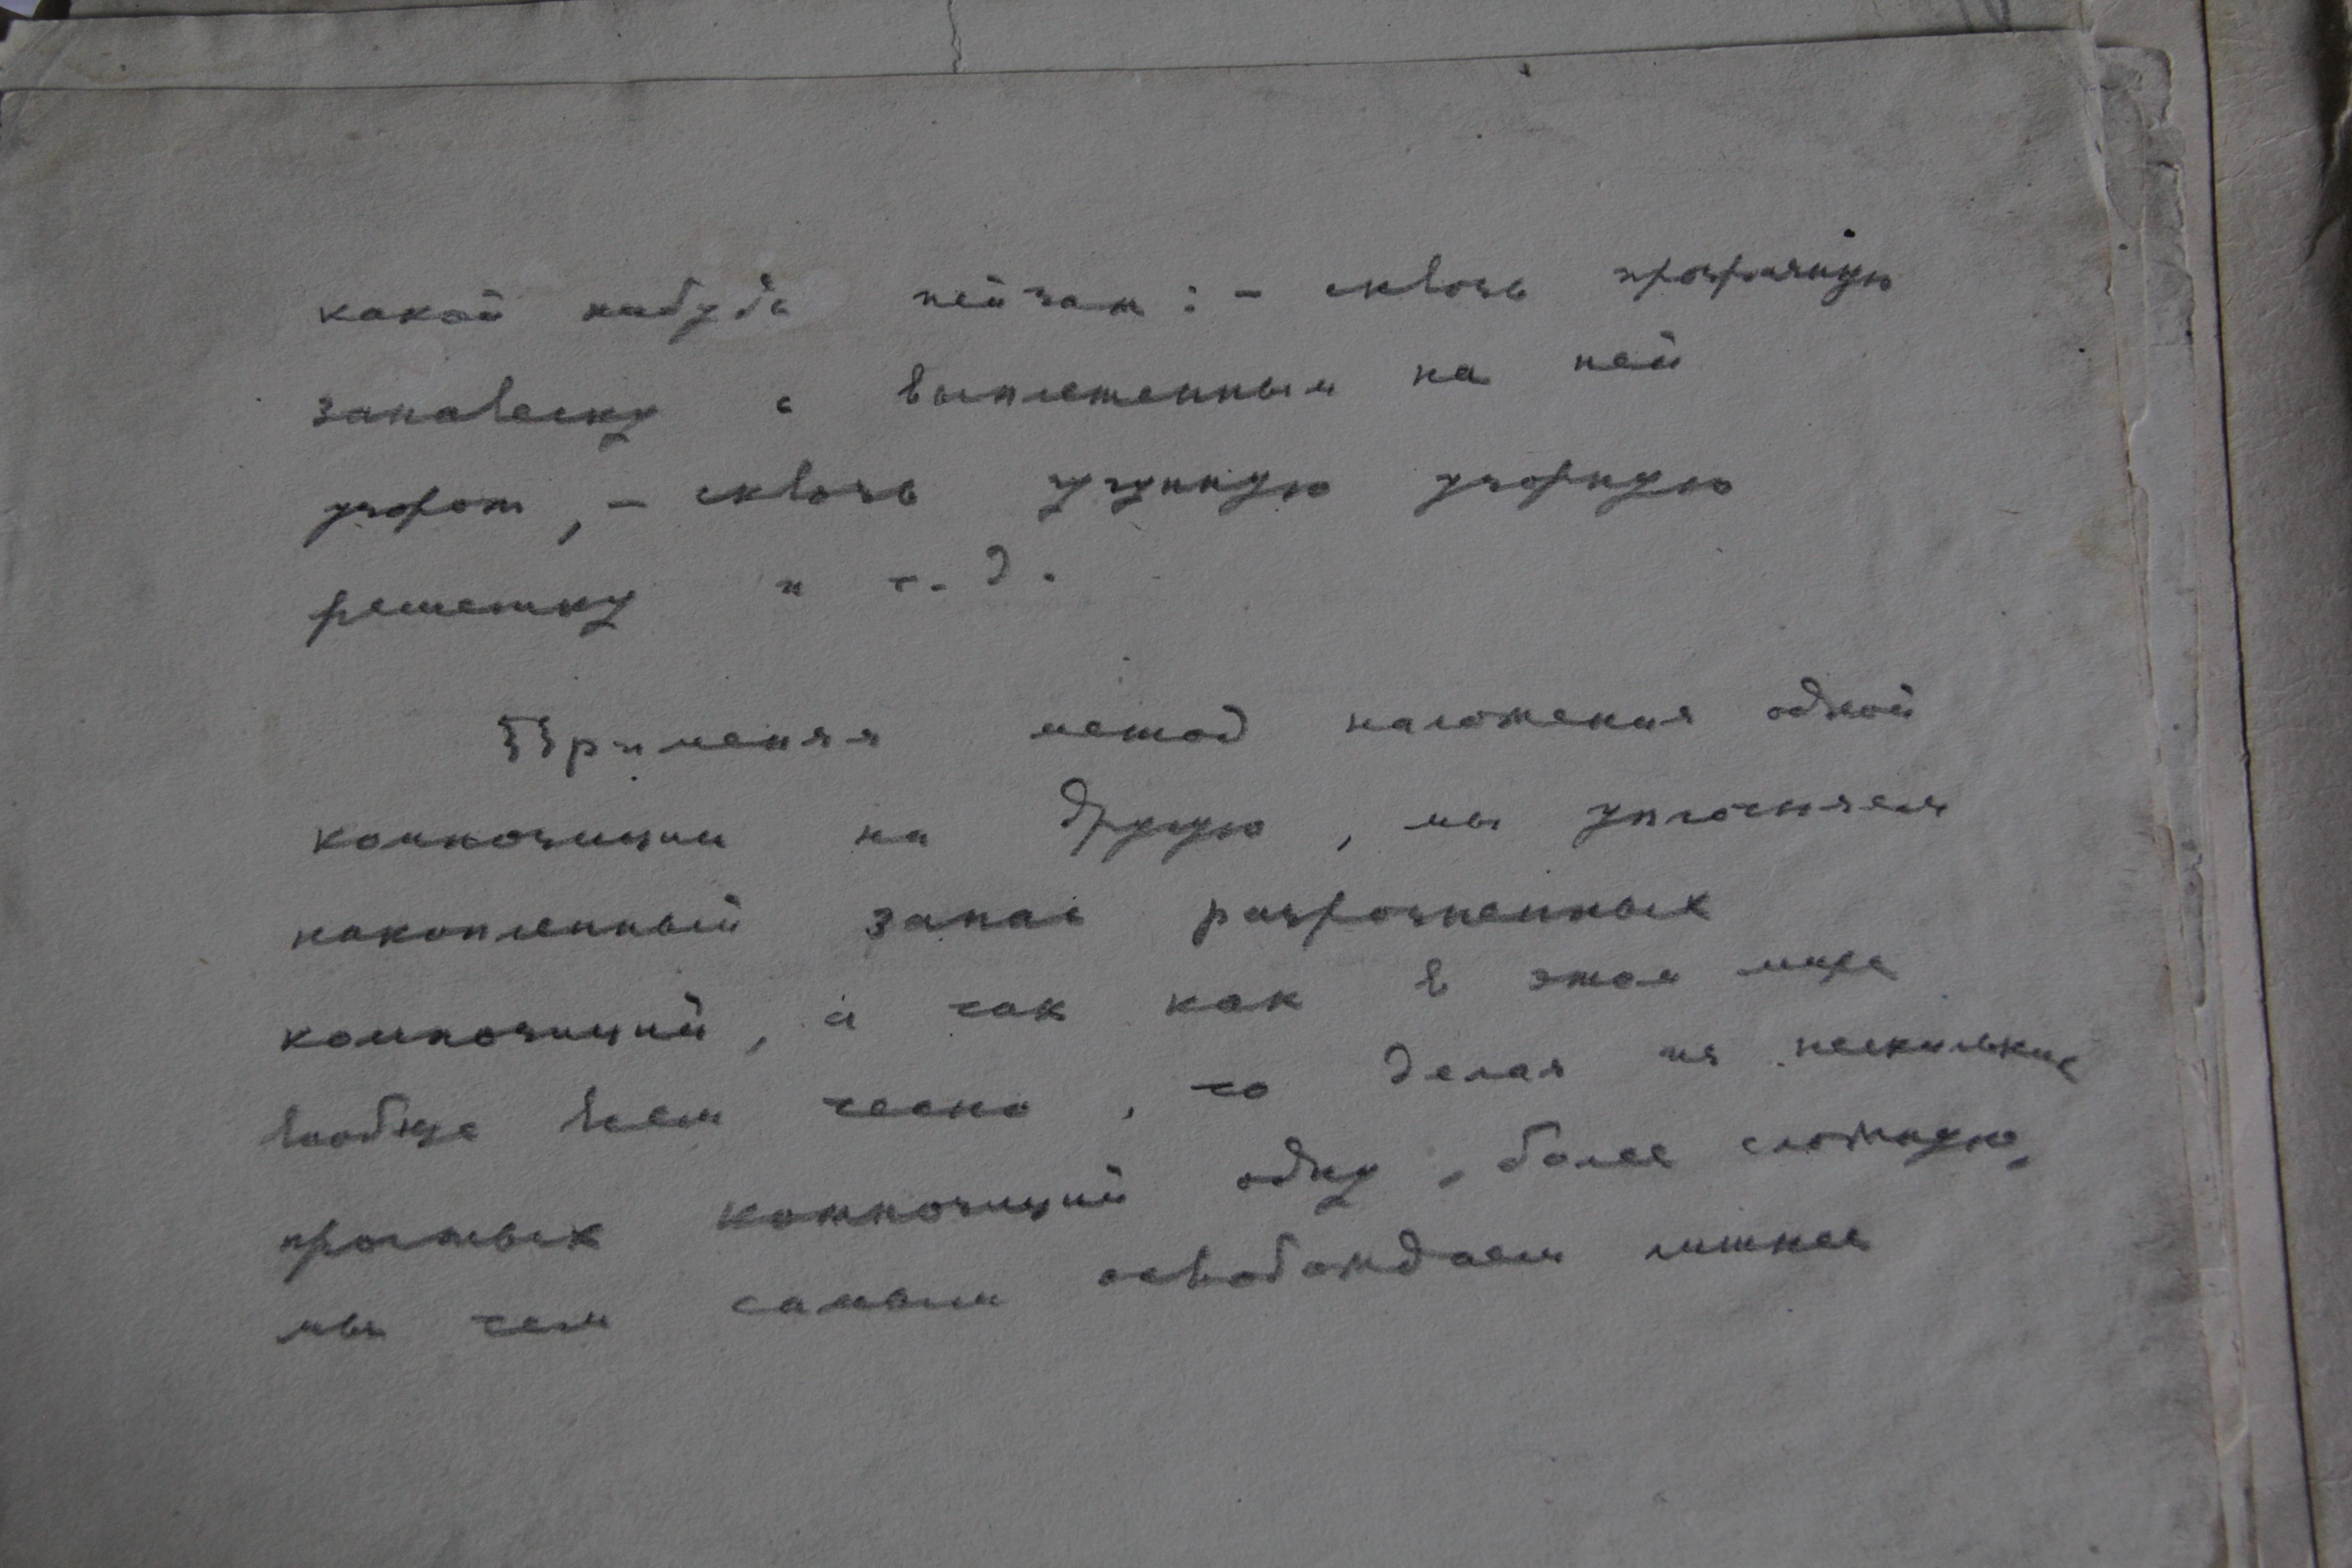 какой нибудь пейзаж: - сквозь прозрачную
занавеску с выплетенным на ней
узором, - сквозь чугунную узорную
решетку и т. д.
Применяя метод наложения одной
композиции на другую, мы уплотняем
накопленный запас разрозненных
композиций, а так как в этом мире
вообще всем тесно, то делая из нескольких
простых композиций одну, более сложную,
мы тем самым освобождаем лишнее